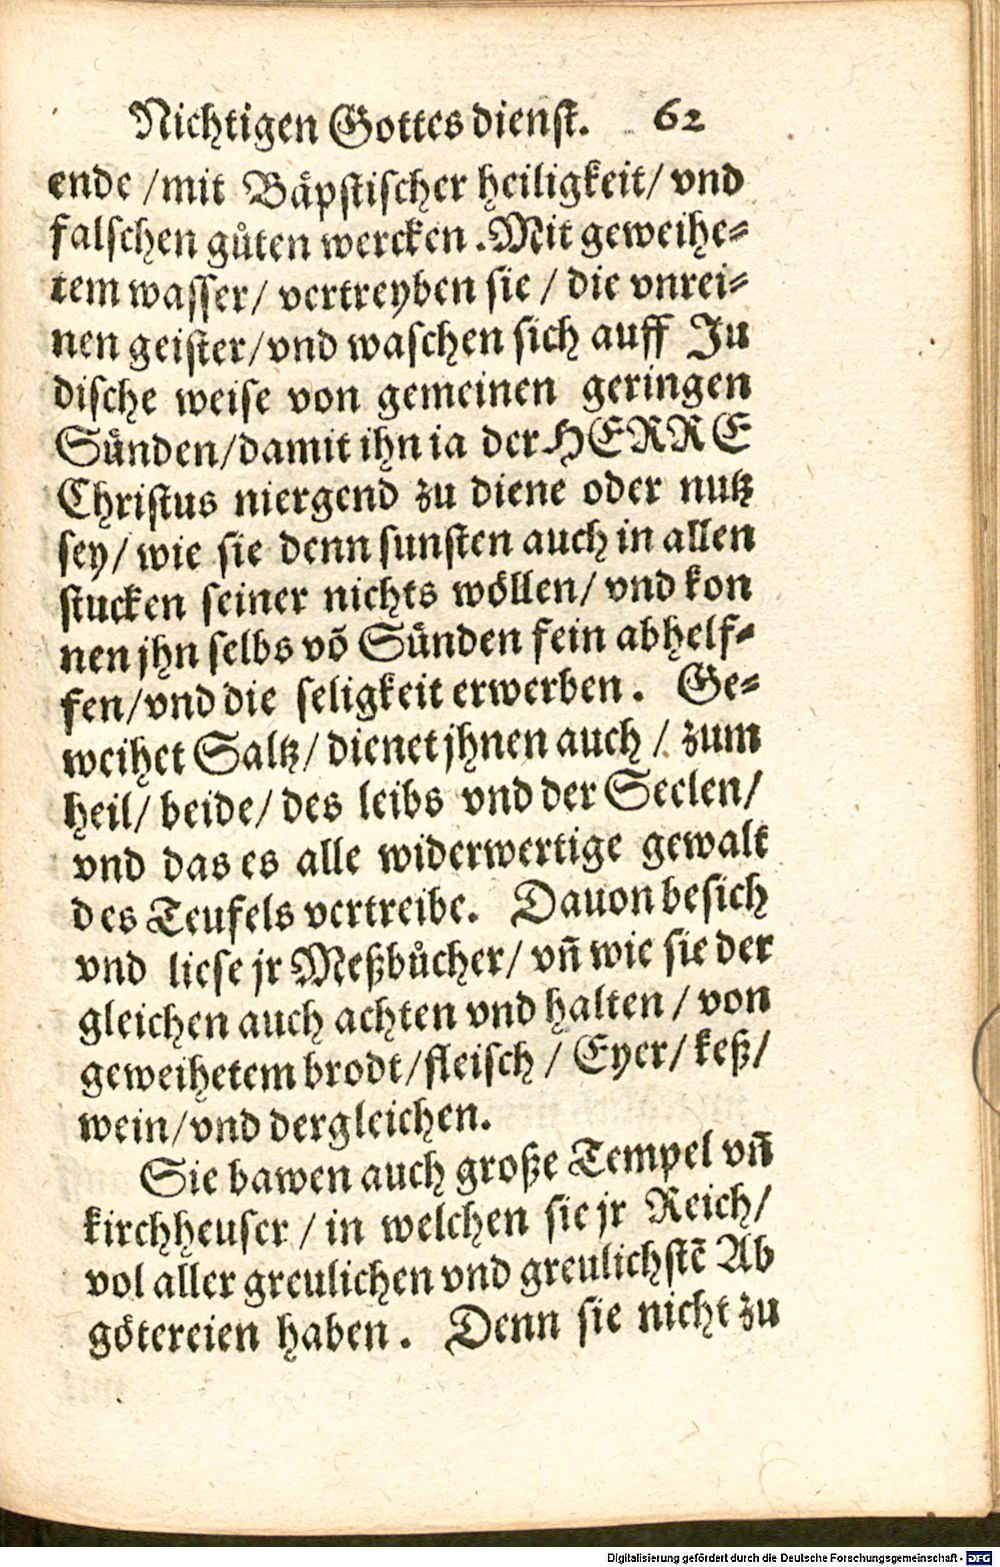 Nichtigen Gottesdienst. 62
ende /mit Bäpstischer heiligkeit/ vnd
falschen gůten wercken .Mit geweihe-
tem wasser/ vertreyben sie / die vnrei-
nen geister/vnd waschen sich auff Ju
dische weise von gemeinen geringen
Sünden/damit ihn ia der HERRE
Christus niergend zu diene oder nutz
sey/ wie sie denn sunsten auch in allen
stucken seiner nichts wöllen/ vnd kon
nen jhn selbs võ Sünden fein abhelf-
fen/vnd die seligkeit erwerben. Ge-
weihet Saltz/ dienet jhnen auch / zum
heil/ beide/ des leibs vnd der Seelen/
vnd das es alle widerwertige gewalt
des Teufels vertreibe. Dauon besich
vnd liese jr Meßbůcher/ vñ wie sie der
gleichen auch achten vnd halten / von
geweihetem brodt/fleisch / Eyer/ keß/
wein/vnd dergleichen.
Sie bawen auch große Tempel vñ
kirchheuser / in welchen sie jr Reich/
vol aller greulichen vnd greulichstẽ Ab
götereien haben. Denn sie nicht zu
Digitalisierung gefördert durch die Deutsche Forschungsgemeinschaft - DFG